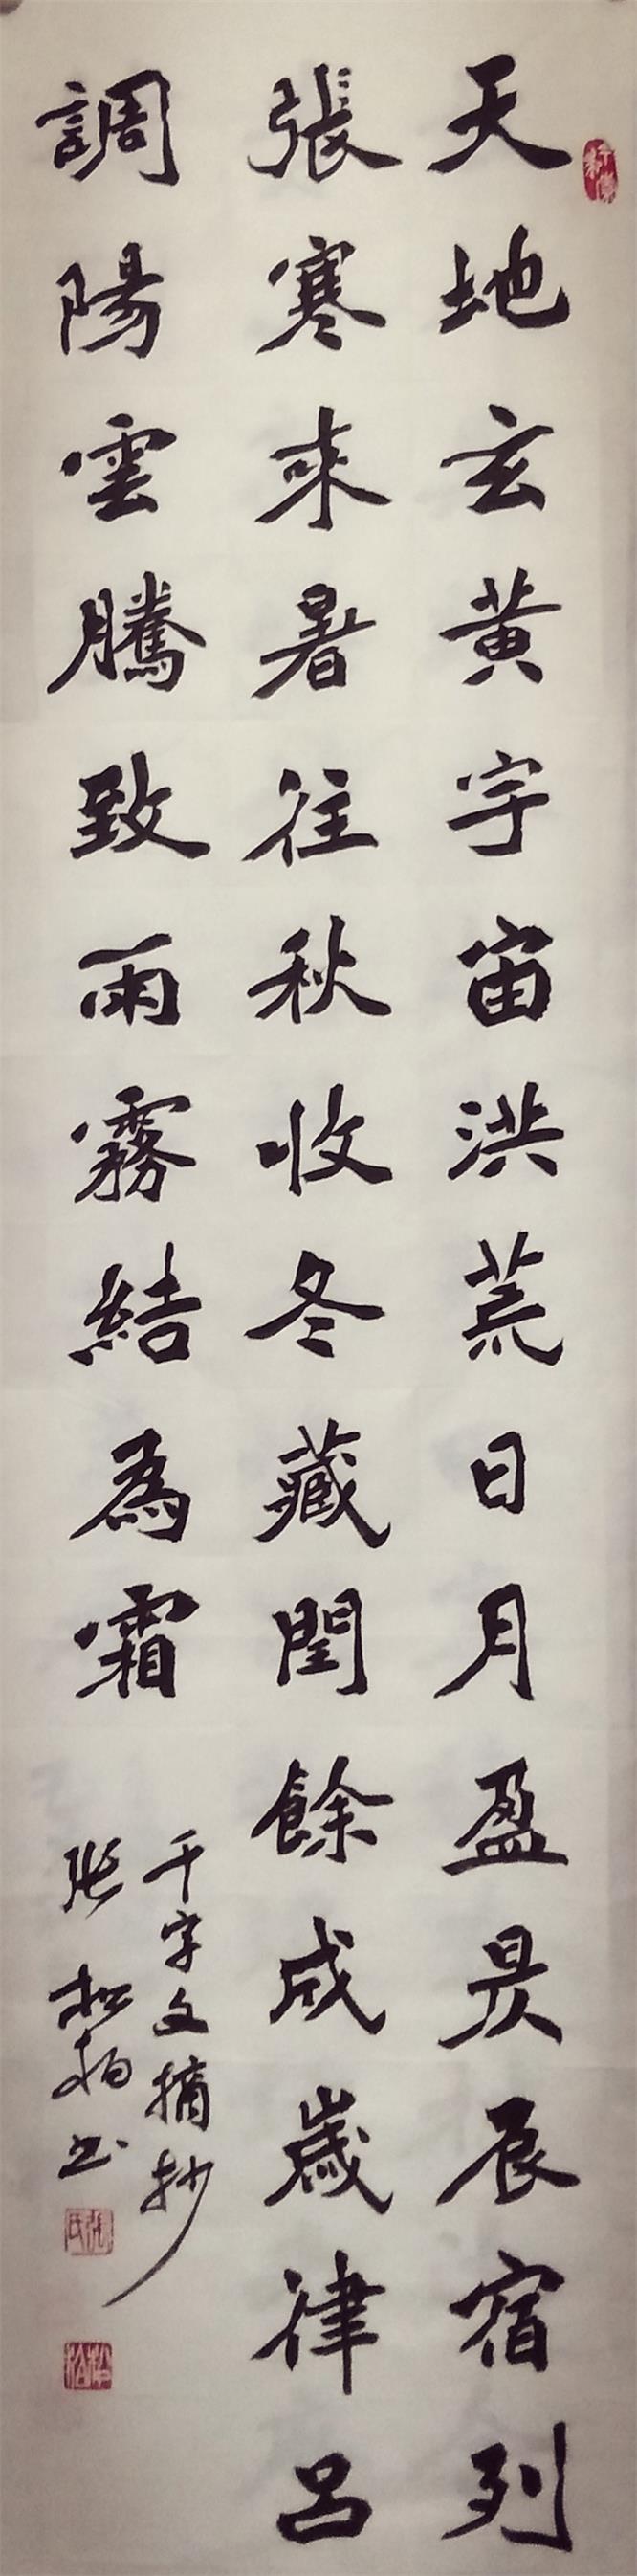 天地玄黄宇宙洪荒日月盈昃辰宿列
張寒來暑往秋收冬藏閏餘成歲律呂
調陽雲騰致雨霧結為霜
千字文摘抄
張松柏书
張氏